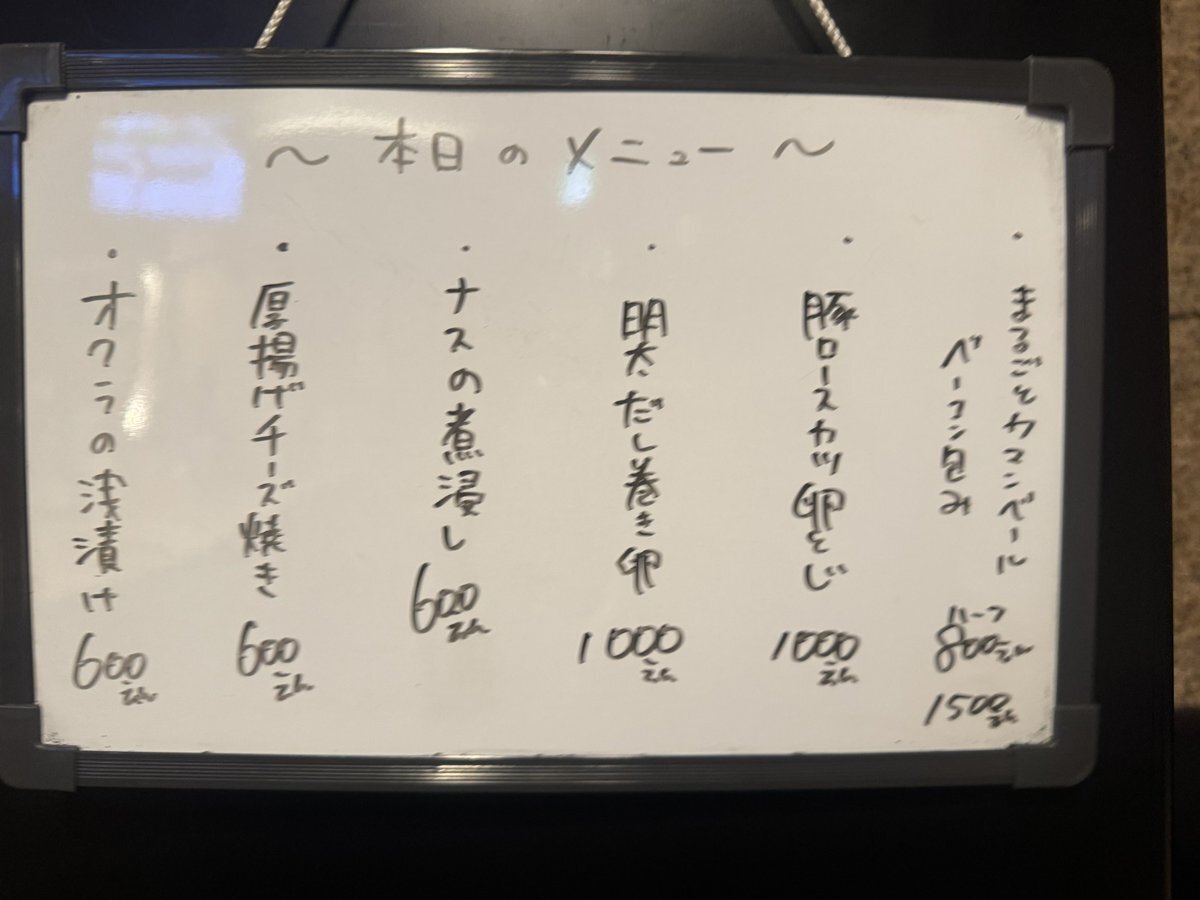 ～ 本日のメニュー ～
・まるごとカマンベール
ベーコン包み
ハーフ
800えん
1500えん
・豚ロースカツ卵とじ
1000えん
・明太だし巻き卵
1000えん
・ナスの煮浸し
600えん
・厚揚げチーズ焼き
600えん
・オクラの浅漬け
600えん